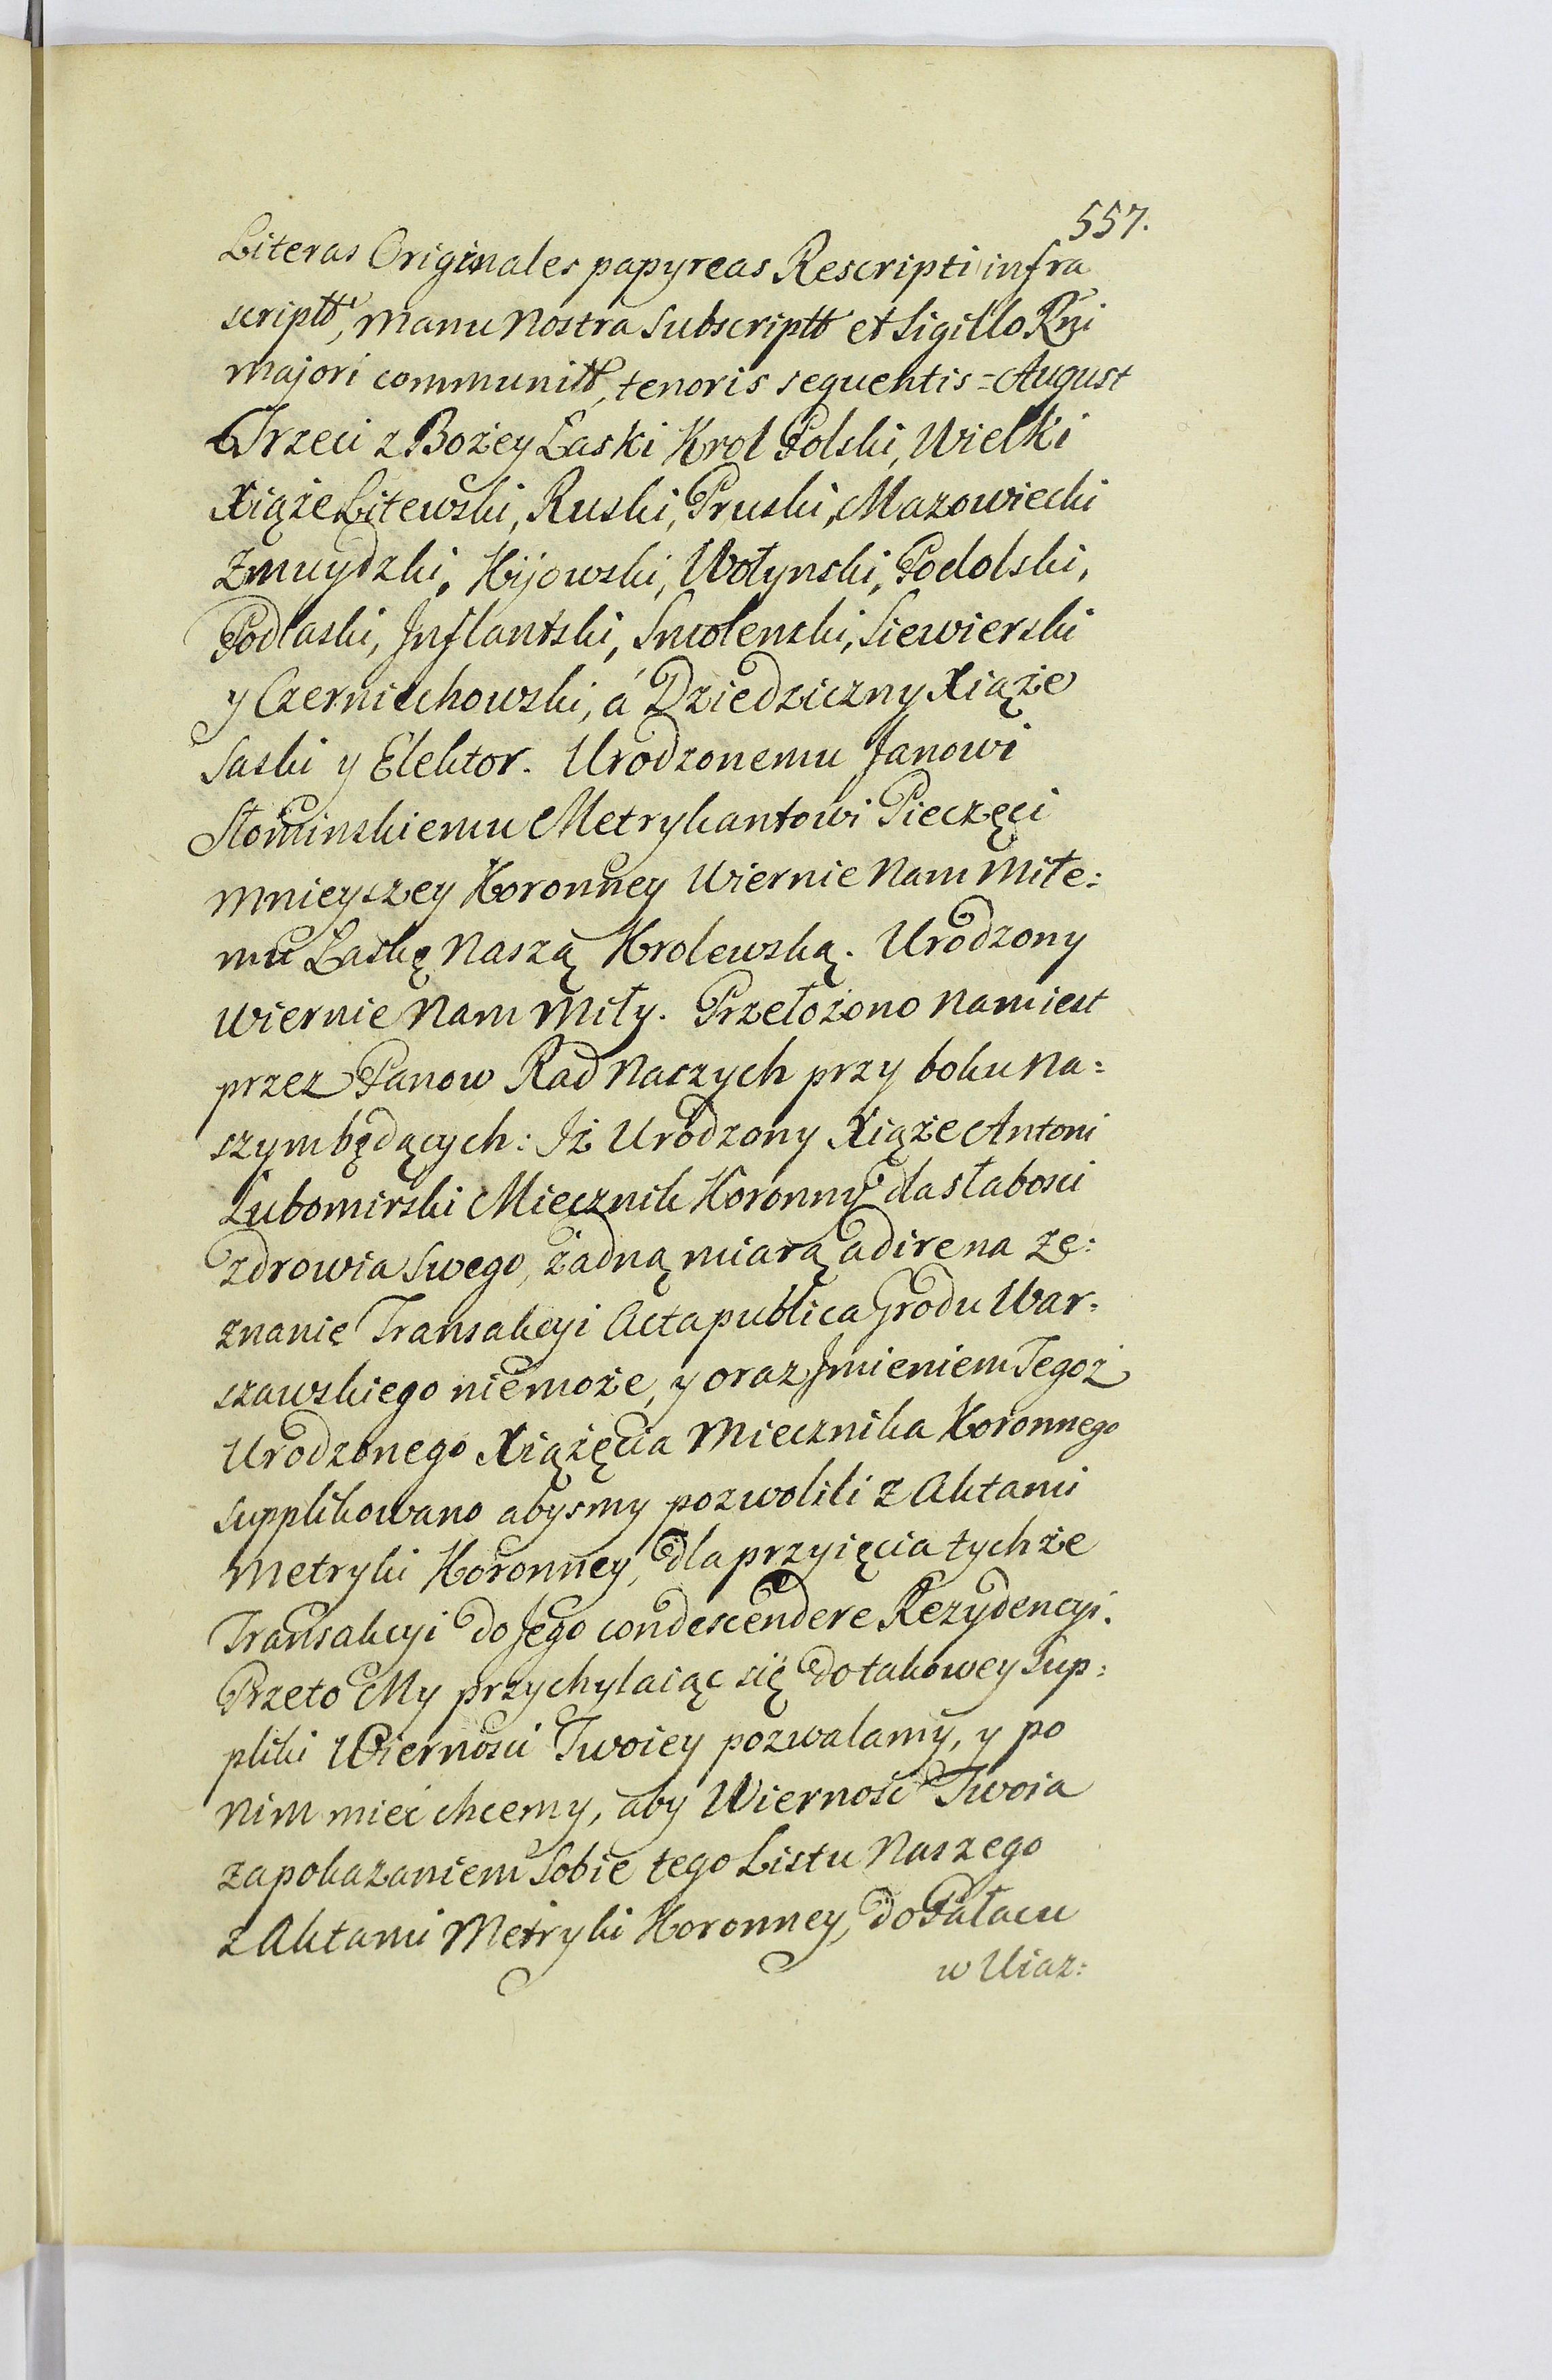 557.
Literas Originales papyreas Rescripti infra
scriptt, manu Nostra Subscriptt et Sigillo Rni
majori communitt, tenoris sequentis = August
Trzeci z Bożey Łaski Krol Polski, Wielki
Xiąże Litewski, Ruski, Pruski, Mazowiecki
Zmuydzki, Kijowski, Wołynski, Podolski,
Podlaski, Jnflantski, Smolenski, Siewierski
y Czerniechowski, á Dziedziczny Xiąże
Saski y Elektor. Urodzonemu Janowi
Słominskiemu Metrykantowi Pieczęci
Mnieyszey Koronney Wiernie Nam Miłe:
mu Łaskę Naszą Krolewską. Urodzony
Wiernie Nam Miły. Przełożono Nam iest
przez Panow Rad Naszych przy boku Na=
szym będących: Jż Urodzony Xiąże Antoni
Lubomirski Miecznik Koronny dla słabosci
zdrowia Swego, żadną miarą adire na ze:
znanie Transakcyi Acta publica Grodu War=
szawskiego niemoże, y oraz Jmieniem Tegoż
Urodzonego Xiążęcia Miecznika Koronnego
supplikowano abysmy pozwolili z Aktami
Metryki Koronney, dla przyięcia tychże
Transakcyi do Jego condescendere Rezydencyi.
Przeto My przychylaiąc się do takowey Sup=
pliki Wiernosci Twoiey pozwalamy, y po
Nim mieć chcemy, aby Wierność Twoia
za pokazaniem Sobie tego Listu Naszego
z Aktami Metryki Koronney, do Pałacu
w Uiaz: